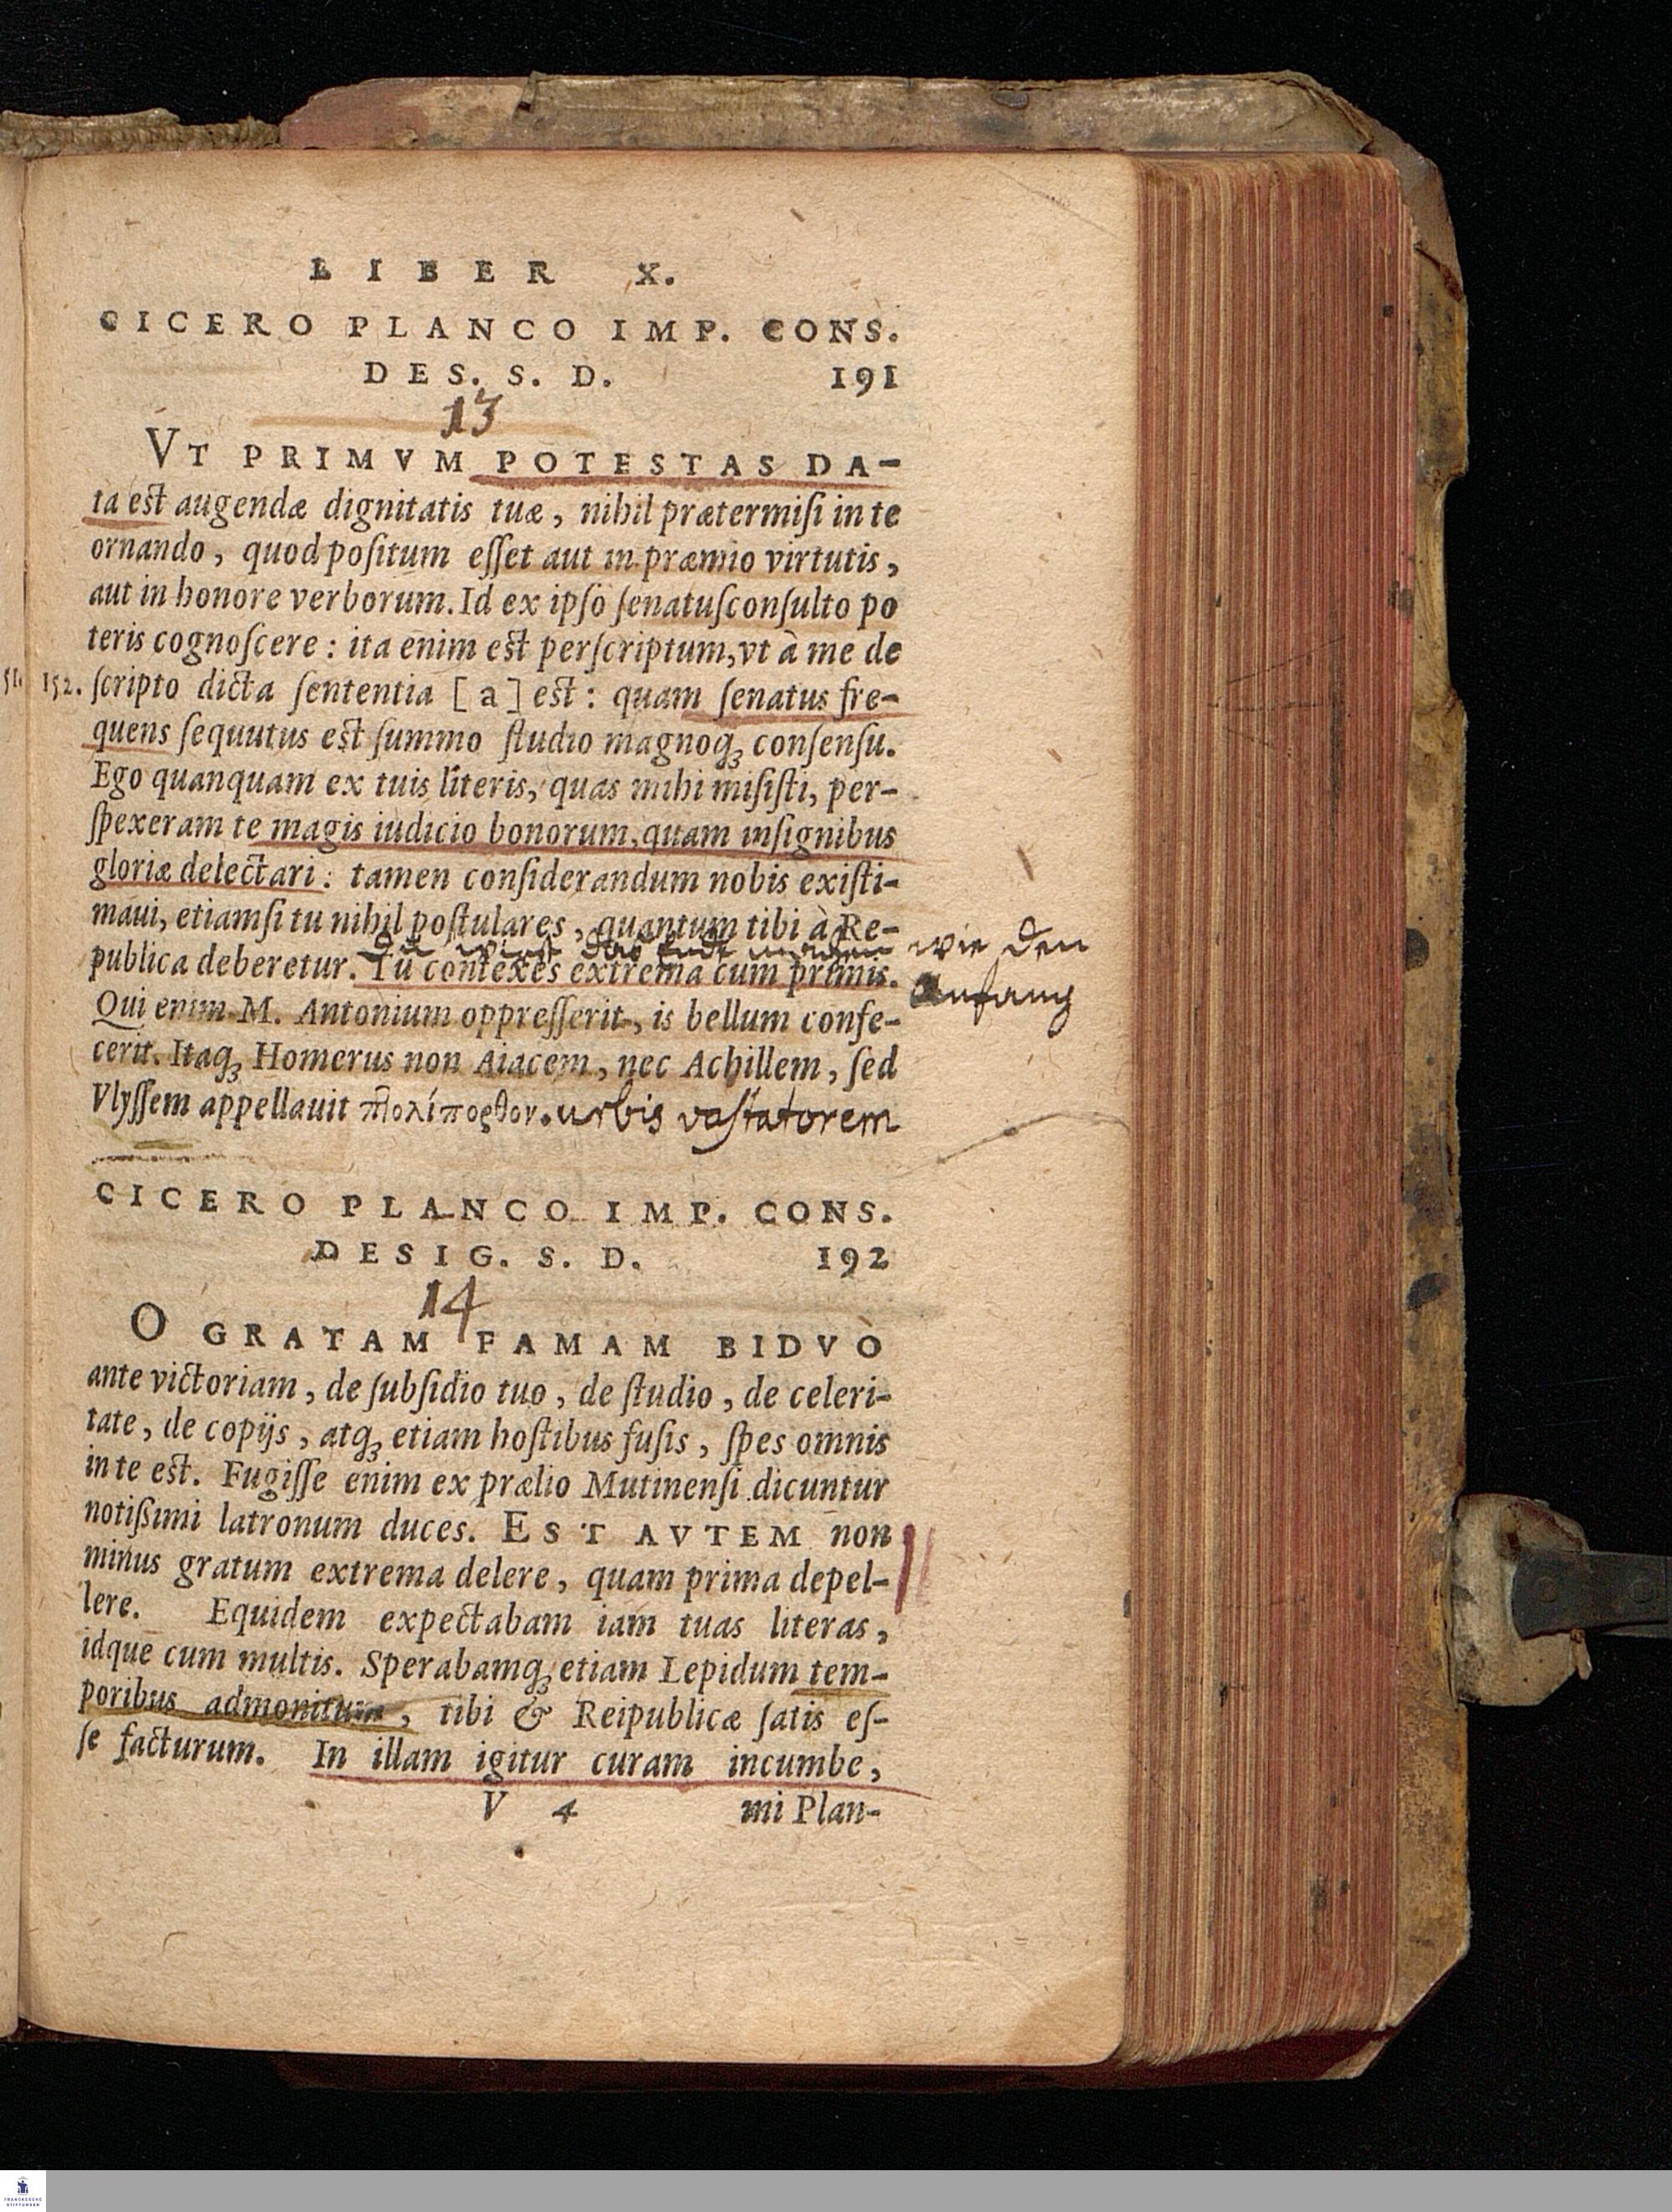 LIBER X.
CICERO PLANCO IMP. CONS.
DES. S. D. 191
13
VT PRIMVM POTESTAS DA-
ta est augendæ dignitatis tuæ, nihil prætermiſi in te
ornando, quod poſitum eſſet aut in præmio virtutis,
aut in honore verborum. Id ex ipſo ſenatuſconſulto po
teris cognoſcere: ita enim est perſcriptum, vt à me de
152. ſcripto dicta ſententia [a] est: quam ſenatus fre-
quens ſequutus est ſummo ſtudio magnoq; conſenſu.
Ego quanquam ex tuis literis, quas mihi miſiſti, per-
ſpexeram te magis iudicio bonorum, quam inſignibus
gloriæ delectari: tamen conſiderandum nobis exiſti-
maui, etiamſi tu nihil poſtulares, quantum tibi à Re-
Du wirst das Ende machen wie den
publica deberetur. Tu contexes extrema cum primis.
Anfang
Qui enim M. Antonium oppreſſerit, is bellum confe-
cerit. Itaq; Homerus non Aiacem, nec Achillem, ſed
Vlyſſem appellauit πτολίπορθον. urbis vaſtatorem
CICERO PLANCO IMP. CONS.
DESIG. S. D. 192
14
O GRATAM FAMAM BIDVO
ante victoriam, de ſubſidio tuo, de ſtudio, de celeri-
tate, de copijs, atq; etiam hoſtibus fuſis, ſpes omnis
in te est. Fugiſſe enim ex prælio Mutinenſi dicuntur
notiſſimi latronum duces. EST AVTEM non
minus gratum extrema delere, quam prima depel-
lere. Equidem expectabam iam tuas literas,
idque cum multis. Sperabamq; etiam Lepidum tem-
poribus admonitum, tibi & Reipublicæ ſatis eſ-
ſe facturum. In illam igitur curam incumbe,
V 4 mi Plan-
FRANCKESCHE
STIFTUNGEN